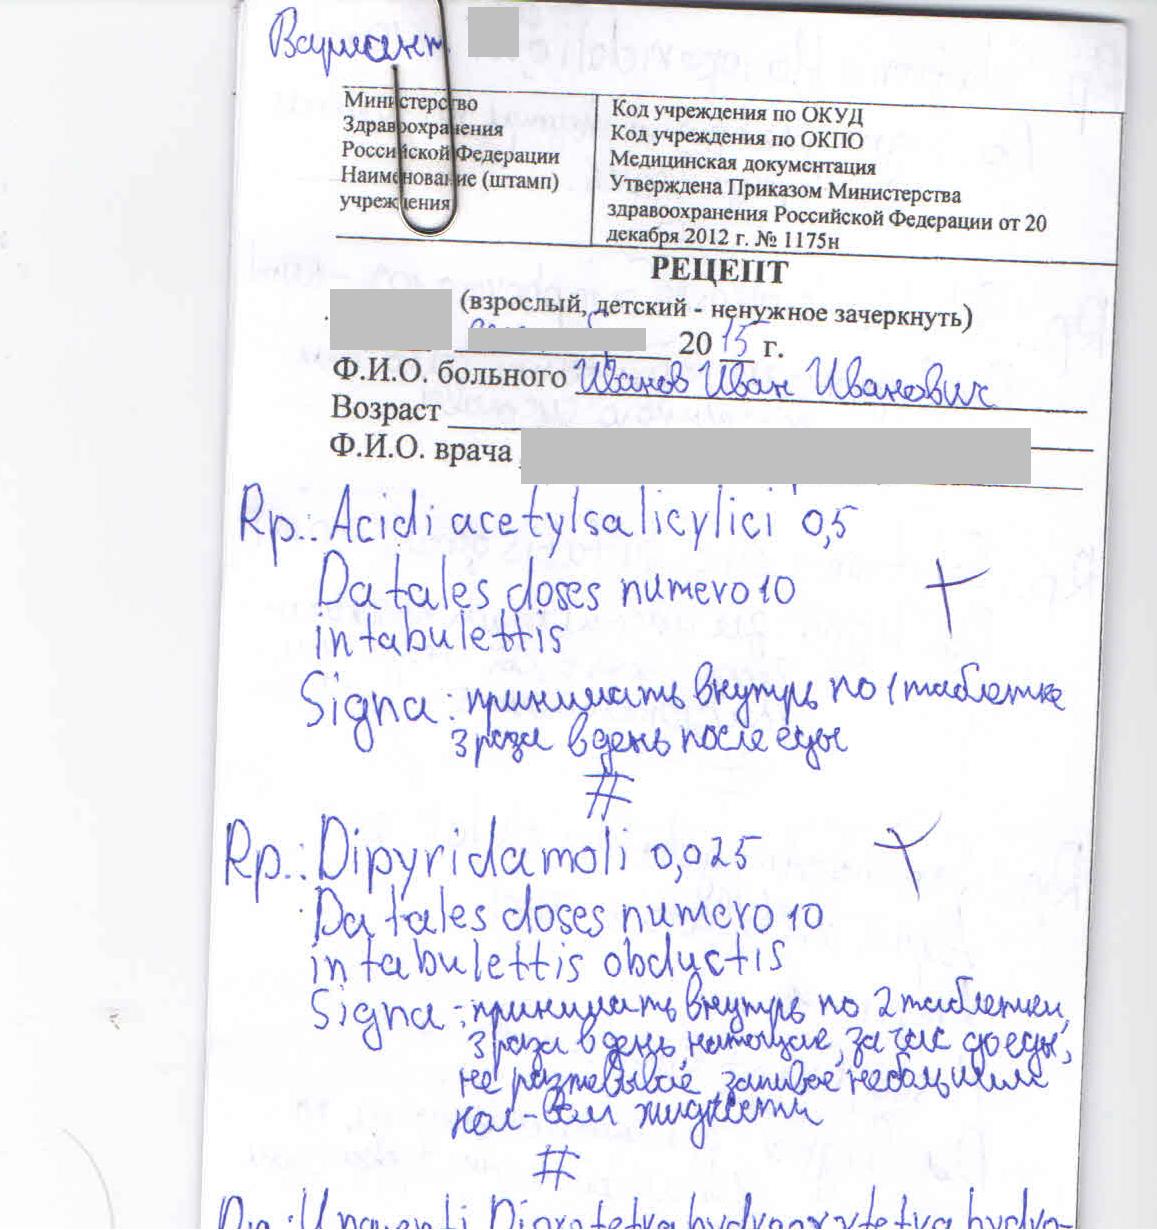 Вариант
Министерство
Здравоохранения
Российской Федерации
Наименование (штамп)
учреждения
Код учреждения по ОКУД
Код учреждения по ОКПО
Медицинская документация
Утверждена Приказом Министерства
здравоохранения Российской Федерации от 20
декабря 2012 г. № 1175н
РЕЦЕПТ
(взрослый, детский - ненужное зачеркнуть)
20 15 г.
Ф.И.О. больного Иванов Иван Иванович
Возраст
Ф.И.О. врача
Rp.: Acidi acetylsalicylici 0,5
Da tales doses numero 10
in tabulettis
Signa: принимать внутрь по 1 таблетке
3 раза в день после еды
#
Rp.: Dipyridamoli 0,025
Da tales doses numero 10
in tabulettis obductis
Signa: принимать внутрь по 2 таблетки,
3 раза в день, натощак, за час до еды,
не разжевывая, запивая небольшим
кол-вом жидкости
#
Rp.: Unguenti